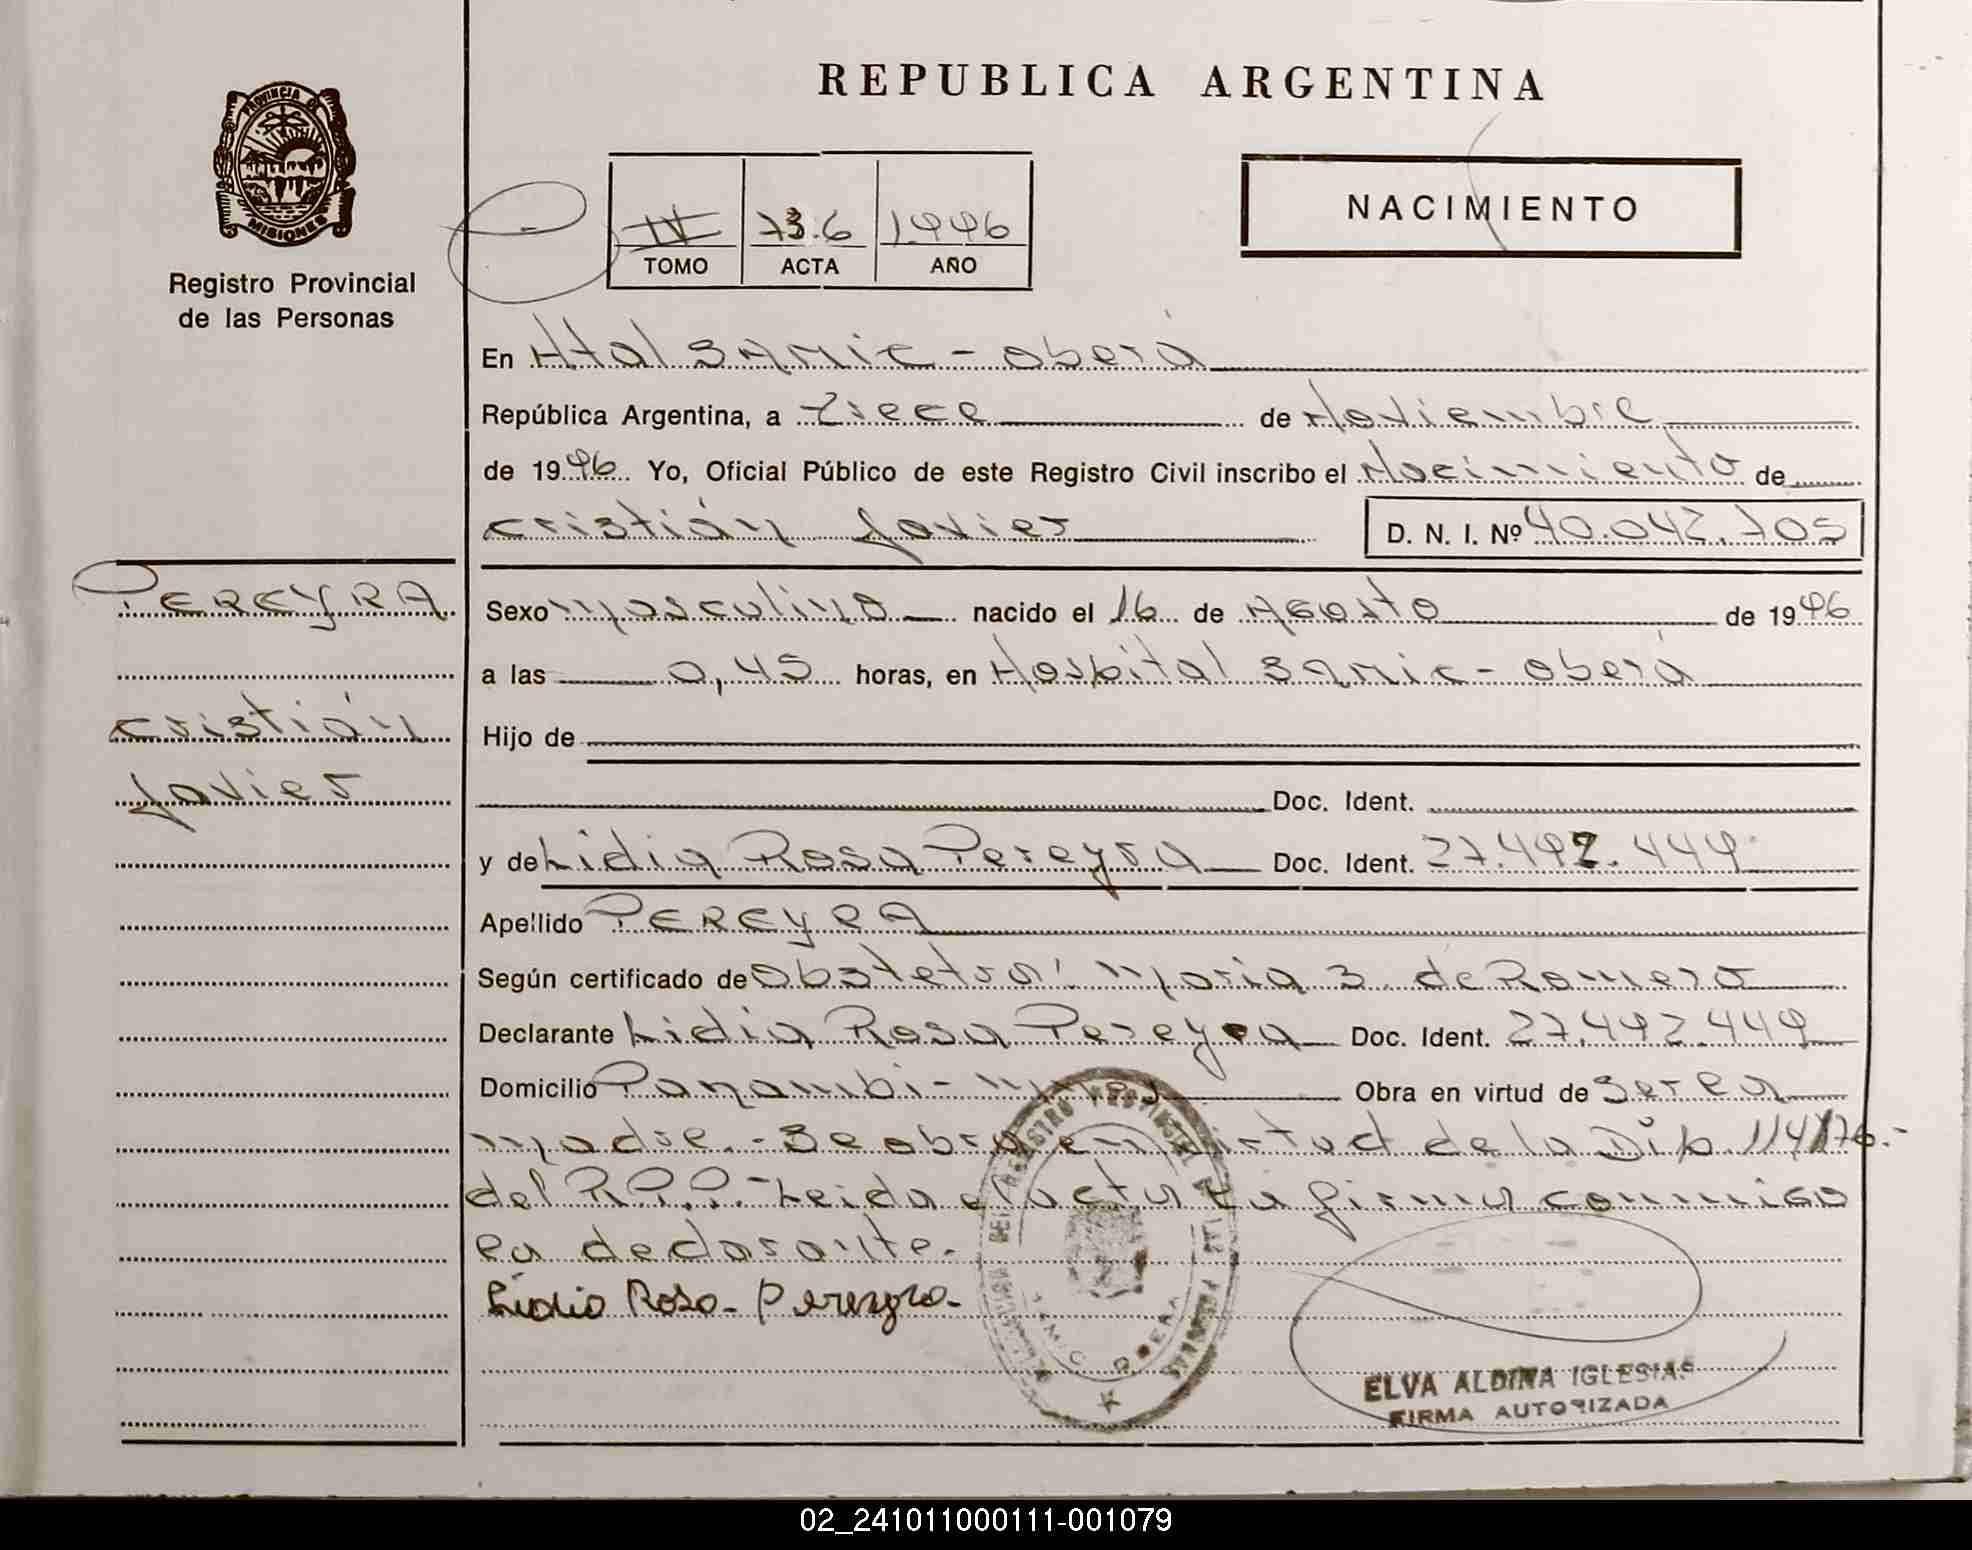 REPUBLICA ARGENTINA
PROVINCIA DE
MISIONES
Registro Provincial
de las Personas
IV 736 1996
TOMO ACTA AÑO
NACIMIENTO
En Htal SAMIC - Oberá
República Argentina, a trece de Noviembre
de 1996 Yo, Oficial Público de este Registro Civil inscribo el Nacimiento de
Cristián Javier D. N. I. Nº 40.042.705
PEREYRA
Cristián
Javier
Sexo masculino nacido el 16 de Agosto de 1996
a las 0,45 horas, en Hospital SAMIC - Oberá
Hijo de
Doc. Ident.
y de Lidia Rosa Pereyra Doc. Ident. 27.492.449
Apellido PEREYRA
Según certificado de Obstetra: María S. de Romero
Declarante Lidia Rosa Pereyra Doc. Ident. 27.492.449
Domicilio Panambí - Mnes Obra en virtud de ser la
madre.- Se obra en virtud de la Disp. 114/76.-
del R.P.P.- Leida el acta la firma conmigo
la declarante.
Lidia Rosa Pereyra
ELVA ALDINA IGLESIAS
FIRMA AUTORIZADA
02_241011000111-001079